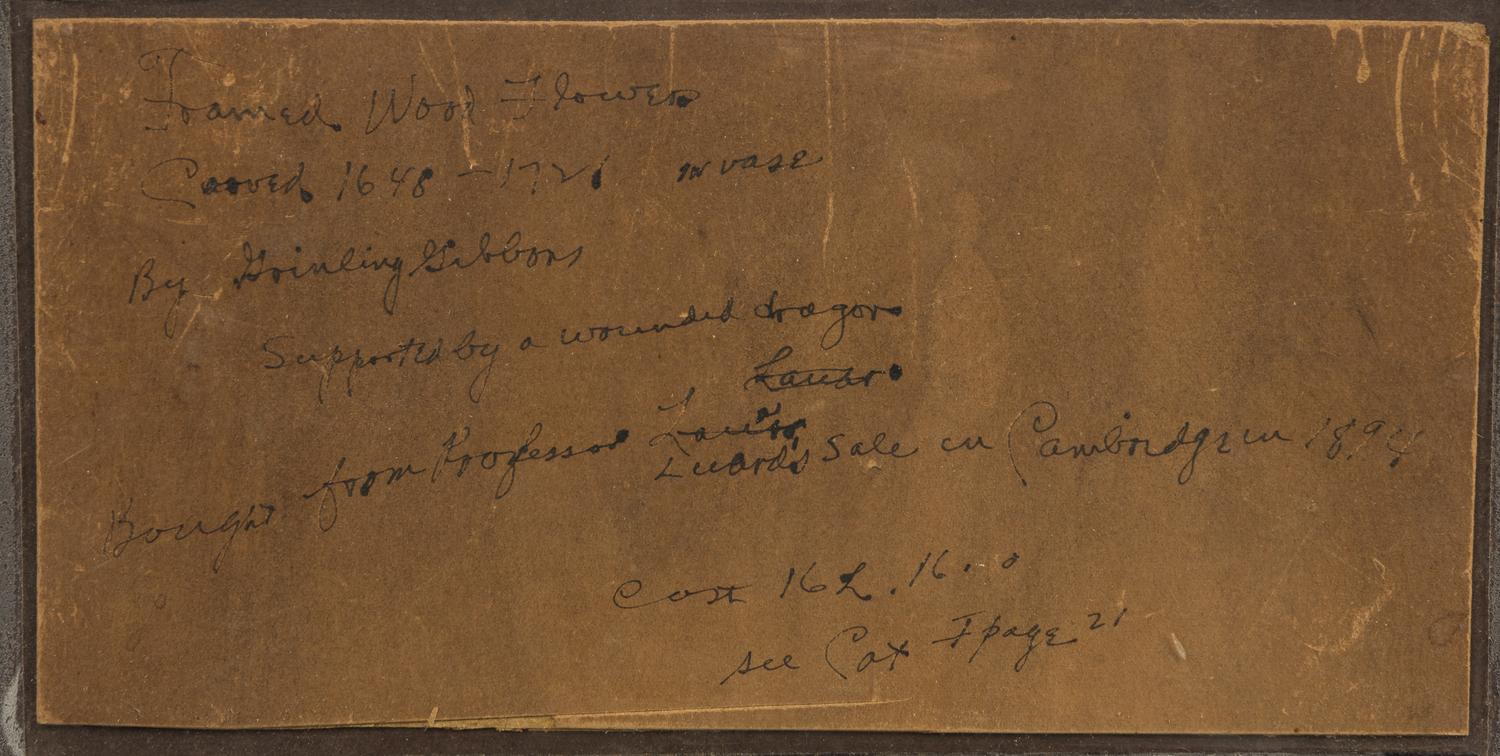 Framed Wood Flowers
Carved 1648 - 1721 in vase
By Grinling Gibbons
Supported by a wounded dragon
Bought from Professor Luard's Sale in Cambridge in 1894
Cost 16£. 16. 0
see Cat I page 21